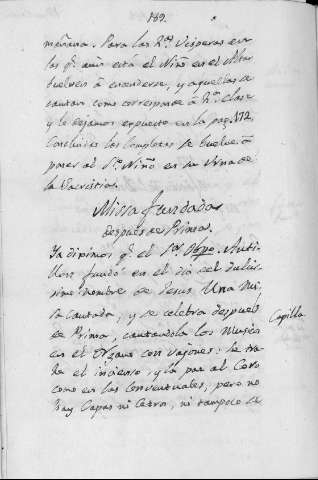 189.
mañana. Para las 2.as Visperas en
las q.e aun está el Niño en el Altar
buelven á encenderse, y aquellas se
cantan como corresponde á 2.a clase
y lo dejamos expuesto en la pag. 172.
Concluidas las Completas se buelve á
poner al S.to Niño en su Urna de
la Sacristia.
Missa fundada
despues de Prima.
Ya diximos q.e el S.or Obpo.
fundó en el dia del dulcis-
simo nombre de Jesus una Mis-
sa cantada, y se celebra despues
de Prima, cantandola los Musicos
Capilla
en el Organo con vajones: se tra-
he el incienso, y la paz al Coro
como en las Conventuales; pero no
hay Capas ni Cetros, ni tampoco se